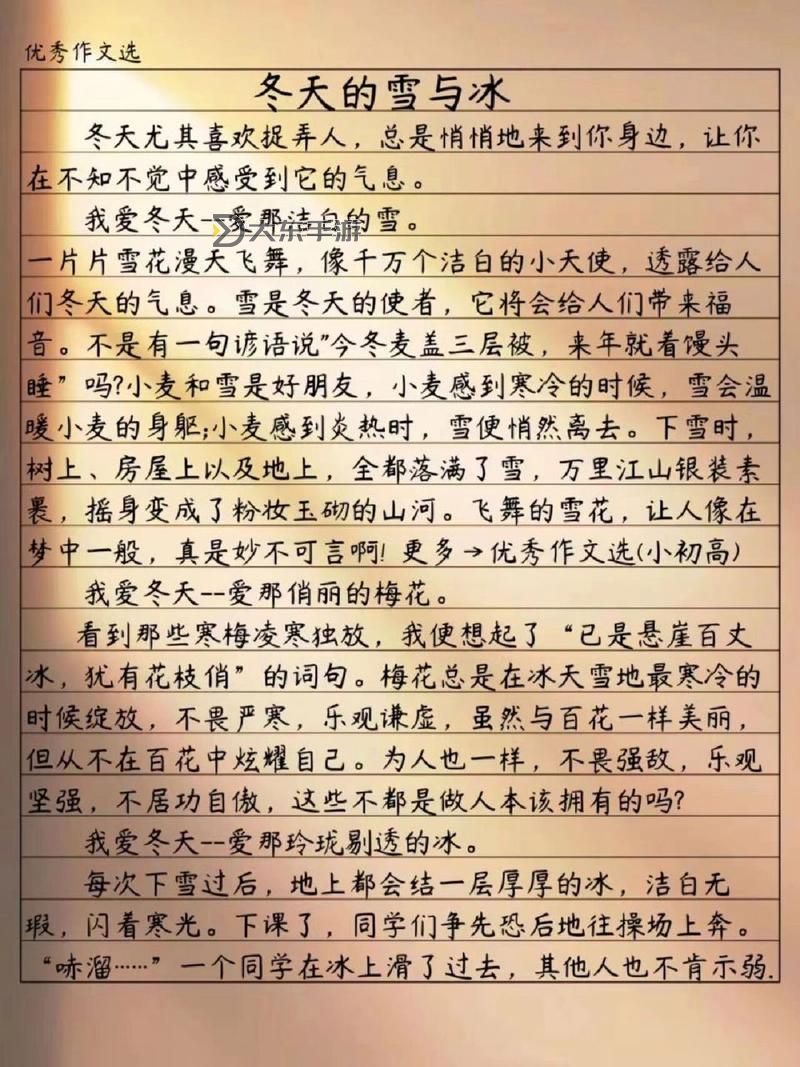 优秀作文选
冬天的雪与冰
冬天尤其喜欢捉弄人，总是悄悄地来到你身边，让你
在不知不觉中感受到它的气息。
我爱冬天--爱那洁白的雪。
大东手游
一片片雪花漫天飞舞，像千万个洁白的小天使，透露给人
们冬天的气息。雪是冬天的使者，它将会给人们带来福
音。不是有一句谚语说"今冬麦盖三层被，来年就着馒头
睡”吗?小麦和雪是好朋友，小麦感到寒冷的时候，雪会温
暖小麦的身躯;小麦感到炎热时，雪便悄然离去。下雪时，
树上、房屋上以及地上，全都落满了雪，万里江山银装素
裹，摇身变成了粉妆玉砌的山河。飞舞的雪花，让人像在
梦中一般，真是妙不可言啊! 更多→优秀作文选(小初高)
我爱冬天--爱那俏丽的梅花。
看到那些寒梅凌寒独放，我便想起了“已是悬崖百丈
冰，犹有花枝俏”的词句。梅花总是在冰天雪地最寒冷的
时候绽放，不畏严寒，乐观谦虚，虽然与百花一样美丽，
但从不在百花中炫耀自己。为人也一样，不畏强敌，乐观
坚强，不居功自傲，这些不都是做人本该拥有的吗?
我爱冬天--爱那玲珑剔透的冰。
每次下雪过后，地上都会结一层厚厚的冰，洁白无
瑕，闪着寒光。下课了，同学们争先恐后地往操场上奔。
“哧溜……”一个同学在冰上滑了过去，其他人也不肯示弱.